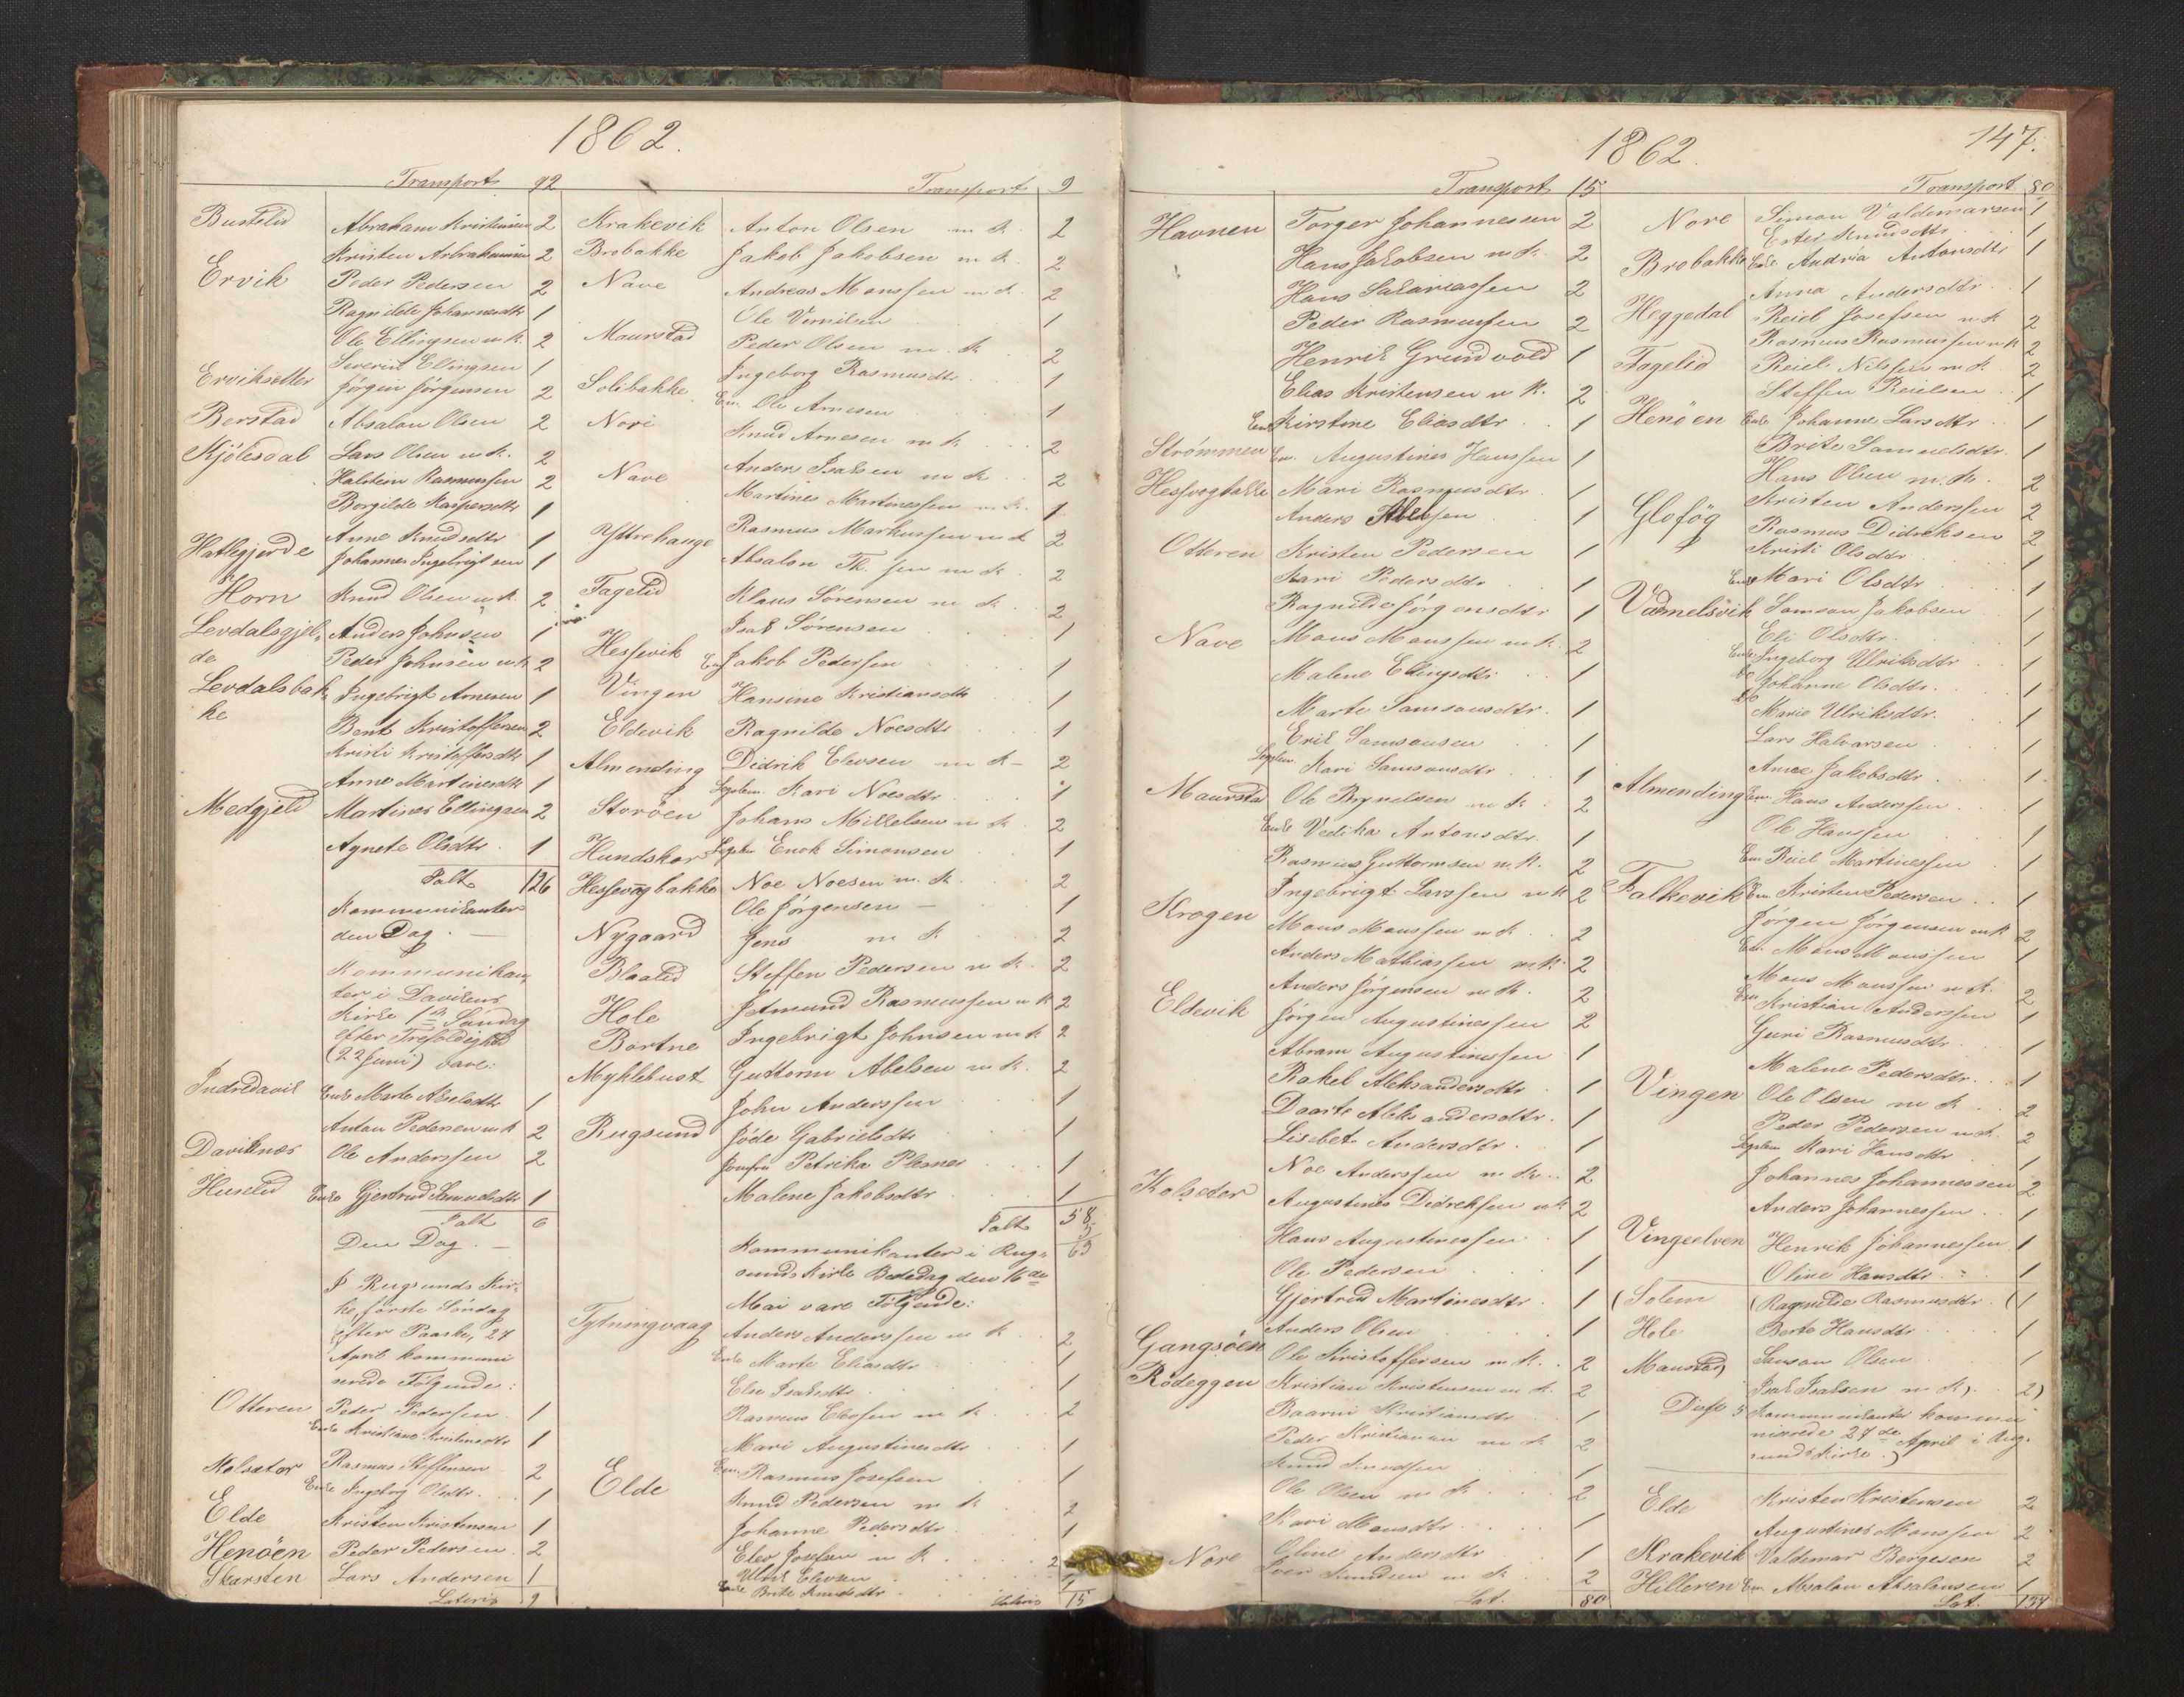 1862.
Transport 92
Bustelid Abraham Kristensen 2
Kristen Abrahamsen 2
Ervik Peder Pedersen 2
Ragnilde Johannesdtr 1
Ole Ellingsen m K. 2
Severin Ellingsen 1
Erviksetter Jörgen Jörgensen 2
Berstad Absalon Olsen 2
Kjölesdal Lars Olsen m K. 2
Halstein Rasmussen 2
Borgilde Kaspersdtr 1
Hatlegjerde Anne Knudsdtr 1
Johannes Ingebrigtsen 1
Horn Knud Olsen m K. 2
Levdalsgjel- Anders Johnsen 1
de Peder Johnsen m K 2
Levdalsbak- Ingebrigt Arnesen 1
ke
Bent Kristoffersen 2
Kristi Kristoffersdtr 1
Anne Martinesdtr 1
Medgjeld Martines Ellingsen 2
Agnete Olsdtr. 1
Ialt 126
Kommunikanter
den Dag. —
Kommunikan-
ter i Davikens
Kirke 1ste Söndag
efter Trefoldighed
(22 Juni) vare:
Indredavik Enke Marte Akselsdtr 1
Anton Pedersen m K 2
Daviknes Ole Anderssen 2
Huselid Enke Gjertrud Samuelsdtr 1
Ialt 6
Den Dag. —
I Rugsunds Kir-
ke, förste Söndag
efter Paaske, 27
April kommuni
cerede Følgende:
Otteren Peder Pederssen 1
Enke Kristiane Kristensdtr 1
Kolsætor Rasmus Steffensen 2
Enke Ingeborg Olsdtr. 1
Elde Kristen Kristensen 1
Henöen Peder Pedersen 2
Skarsten Lars Andersen 1
Lateris 9
Transport 9
Krakevik Anton Olsen m K. 2
Brobakke Jakob Jakobsen m K. 2
Nave Andreas Monssen m K. 2
Ole 1
Maurstad Peder Olsen m. K. 2
Ingeborg Rasmusdtr. 1
Solibakke Em. Ole Arnesen 1
Nori Knud Arnesen m K 2
Nave Anders Isaksen m K 2
Martines Martinessen m K. 1
Yttrehauge Rasmus Markussen m K 2
Absalon Th. sen m K. 2
Fagelid Klaus Sörensen m K. 2
Isak Sörensen 1
Hessevik Em Jakob Pederssen 1
Vingen Hansine Kristiansdtr 1
Eldevik Ragnilde Noesdtr 1
Almending Didrik Elevsen m K 2
Legdem. Kari Noesdtr 1
Storöen Johans Mikkelsen m K 2
Hundskor Legdm Enok Simonsen 1
Hessevogbakke Noe Noesen m. K. 2
Ole Jörgensen — 1
Nygaard Jens m K. 2
Blaalid Steffen Pedersen m K. 2
Hole Jetmund Rasmussen m K 2
Bortne Ingebrigt Johnsen m K 2
Myklebust Guttorm Abelsen m K. 2
John Anderssen 1
Rugsund Jöde Gabrielsdtr 1
Jomfru Petrika Plesner 1
Malene Jakobsdtr 1
Ialt 58
5
63
Kommunikanter i Rug-
sunds Kirke Bededag den 16de
Mai vare Følgende:
Tytningvaag Anders Anderssen m K 2
Enke Marte Eliasdtr 1
Else Isaksdtr 1
Rasmus Elevsen m K 2
Mari Augustinesdtr 1
Elde Em. Rasmus Josefsen 1
Knud Pedersen m K 2
Johanne Pedersdtr 1
Elev Josefsen m K. 2
Elevsen 1
Enke Brite Knudsdtr 1
Lateris 15
1862. 147.
Transport 15
Havnen Torger Johannessen 2
Hans Jakobsen m K. 2
Hans Sakariassen 2
Peder Rasmussen 2
Henrik Grundvold 1
Elias Kristensen m K. 2
Enke Kirstine Eliasdtr 1
Strömmen Em. Augustines Hanssen 1
Hessvogbakke Mari Rasmusdtr. 1
Anders Abelsen 1
Otteren Kristen Pedersen 1
Kari Pedersdtr 1
Ragnilde Jörgensdtr 1
Nave Mons Monssen m K. 2
Malene Ellingsdtr. 1
Marte Samsonsdtr. 1
Erik Samsonsen 1
Legdem. Kari Samsonsdtr 1
Maurstad Ole Brynelsen m K. 2
Enke Vedika Antonsdtr 1
Rasmus Guttormsen m K. 2
Ingebrigt Larssen m K 2
Krogen Mons Monssen m K. 2
Anders Mathiassen m. K. 2
Anders Jörgensen m K. 2
Eldevik Jörgen Augustinessen 2
Abram Augustinessen 1
Rakel Aleksandersdtr 1
Daarte Aleksandersdtr. 1
Lisebet Andersdtr. 1
Noe Anderssen m K. 2
Kolsetor Augustines Didreksen m K 2
Hans Augustinessen 1
Ole Pedersen 1
Gjertrud Martinesdtr. 1
Anders Olsen 1
Gangsöen Ole Kristoffersen m K. 2
Rödeggen Kristian Kristensen m K. 2
Baarni Kristiansdtr 1
Peder Kristiansen m K 2
Knud Knudsen 1
Ole Olsen m K. 2
Kari Monsdtr 1
Nore Oline Andersdtr 1
Iver Knudsen m K. 2
Lat. 80
Transport 80
Nore Simon Valdemarsen 1
Ester Knudsdtr. 1
Brobakke Enke Andria Antonsdtr 1
Anna Andersdtr. 1
Heggedal Reiel Josefsen m K 2
Rasmus Rasmussen m K 2
Fagelid Reiel Nilssen m K. 2
Steffen Reielsen 1
Henöen Enke Johanne Larsdtr 1
Brite Samuelsdtr. 1
Hans Olsen m. K. 2
Glofög Kristen Anderssen 2
Rasmus Didreksen 2
Kristi Olsdtr. 1
Enke Mari Olsdtr 1
Vaămelsvik Samson Jakobsen 1
Eli Olsdtr. 1
Enke Ingeborg Ulriksdtr 1
Do Johanne Olsdtr. 1
Do Marie Ulriksdtr. 1
Lars Halvarsen 1
Anne Jakobsdtr 1
Almending Em. Hans Anderssen 1
Ole Hanssen 1
Em Reiel Martinessen 1
Falkevik Em. Kristen Pedersen 1
Jörgen Jörgensen m K 2
Em. Mons Monssen 1
Mons Monssen m K. 2
Em Kristian Anderssen 1
Guri Rasmusdtr. 1
Malene Pedersdtr. 1
Vingen Ole Olsen m K. 2
Peder Pedersen m K. 2
Legdem Kari Hansdtr 1
Johannes Johannessen 2
Anders Johannessen 1
Vingeelven Henrik Johannessen 1
Oline Hansdtr. 1
(Solem (Ragnilde Rasmusdtr. (1
Hole Berte Hansdtr 1
Maurstad Samson Olsen 1
Isak Isaksen m K). 2)
Disse 5 Kommunikanter kommu
nicerede 27de April i Rug-
sunds Kirke.)
Elde Kristen Kristensen 2
Augustines Monssen 2
Krakevik Valdemar Börgesen 2
Hilleren Em Absalon Absalonsen 1
Lat. 137